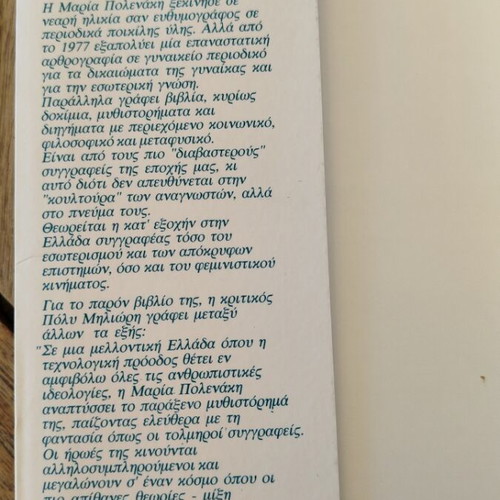 Η Μαρία Πολενάκη ξεκίνησε σε
νεαρή ηλικία σαν ευθυμογράφος σε
περιοδικά ποικίλης ύλης. Αλλά από
το 1977 εξαπολύει μία επαναστατική
αρθρογραφία σε γυναικείο περιοδικό
για τα δικαιώματα της γυναίκας και
για την εσωτερική γνώση.
Παράλληλα γράφει βιβλία, κυρίως
δοκίμια, μυθιστορήματα και
διηγήματα με περιεχόμενο κοινωνικό,
φιλοσοφικό και μεταφυσικό.
Είναι από τους πιο "διαβαστερούς"
συγγραφείς της εποχής μας, κι
αυτό διότι δεν απευθύνεται στην
"κουλτούρα" των αναγνωστών, αλλά
στο πνεύμα τους.
Θεωρείται η κατ' εξοχήν στην
Ελλάδα συγγραφέας τόσο του
εσωτερισμού και των απόκρυφων
επιστημών, όσο και του φεμινιστικού
κινήματος.
Για το παρόν βιβλίο της, η κριτικός
Πόλυ Μηλιώρη γράφει μεταξύ
άλλων τα εξής:
"Σε μια μελλοντική Ελλάδα όπου η
τεχνολογική πρόοδος θέτει εν
αμφιβόλω όλες τις ανθρωπιστικές
ιδεολογίες, η Μαρία Πολενάκη
αναπτύσσει το παράξενο μυθιστόρημά
της, παίζοντας ελεύθερα με τη
φαντασία όπως οι τολμηροί συγγραφείς.
Οι ήρωές της κινούνται
αλληλοσυμπληρούμενοι και
μεγαλώνουν σ' έναν κόσμο όπου οι
πιο απίθανες θεωρίες - μίξη